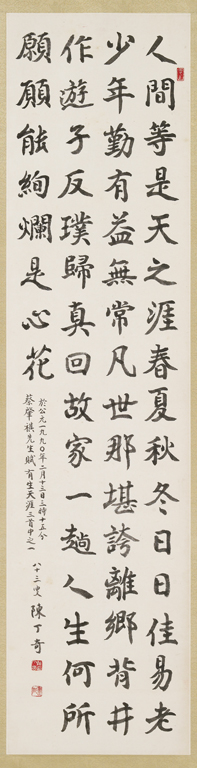 人間等是天之涯春夏秋冬日日佳易老
少年勤有益無常凡世那堪誇離鄉背井
作遊子反璞歸真回故家一趟人生何所
願願能絢爛是心花
於公元一九九〇年二月十三日三時十五分
蔡肇祺先生賦有生天涯三首中之一
八十三叟 陳丁奇